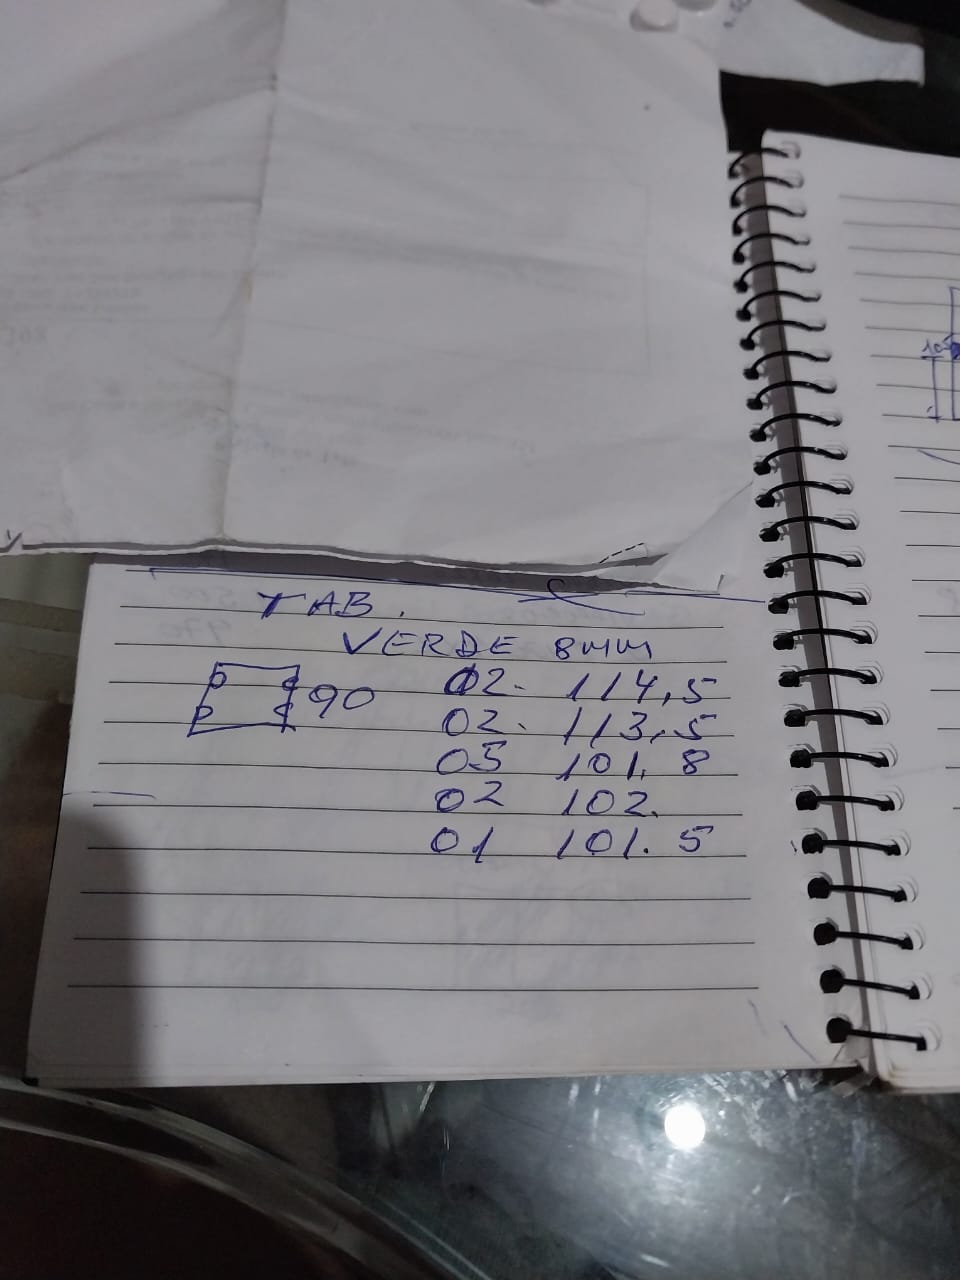 TAB.
VERDE 8MM
90
02. 114,5
02. 113,5
05 101. 8
02 102.
01 101. 5